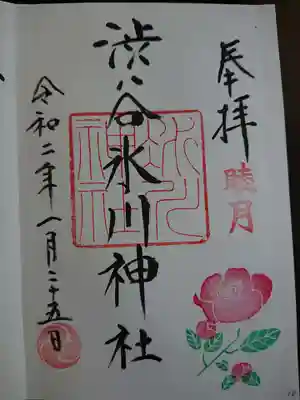 奉拝
睦月
渋谷氷川神社
氷川
神社
令和二年一月二十五日